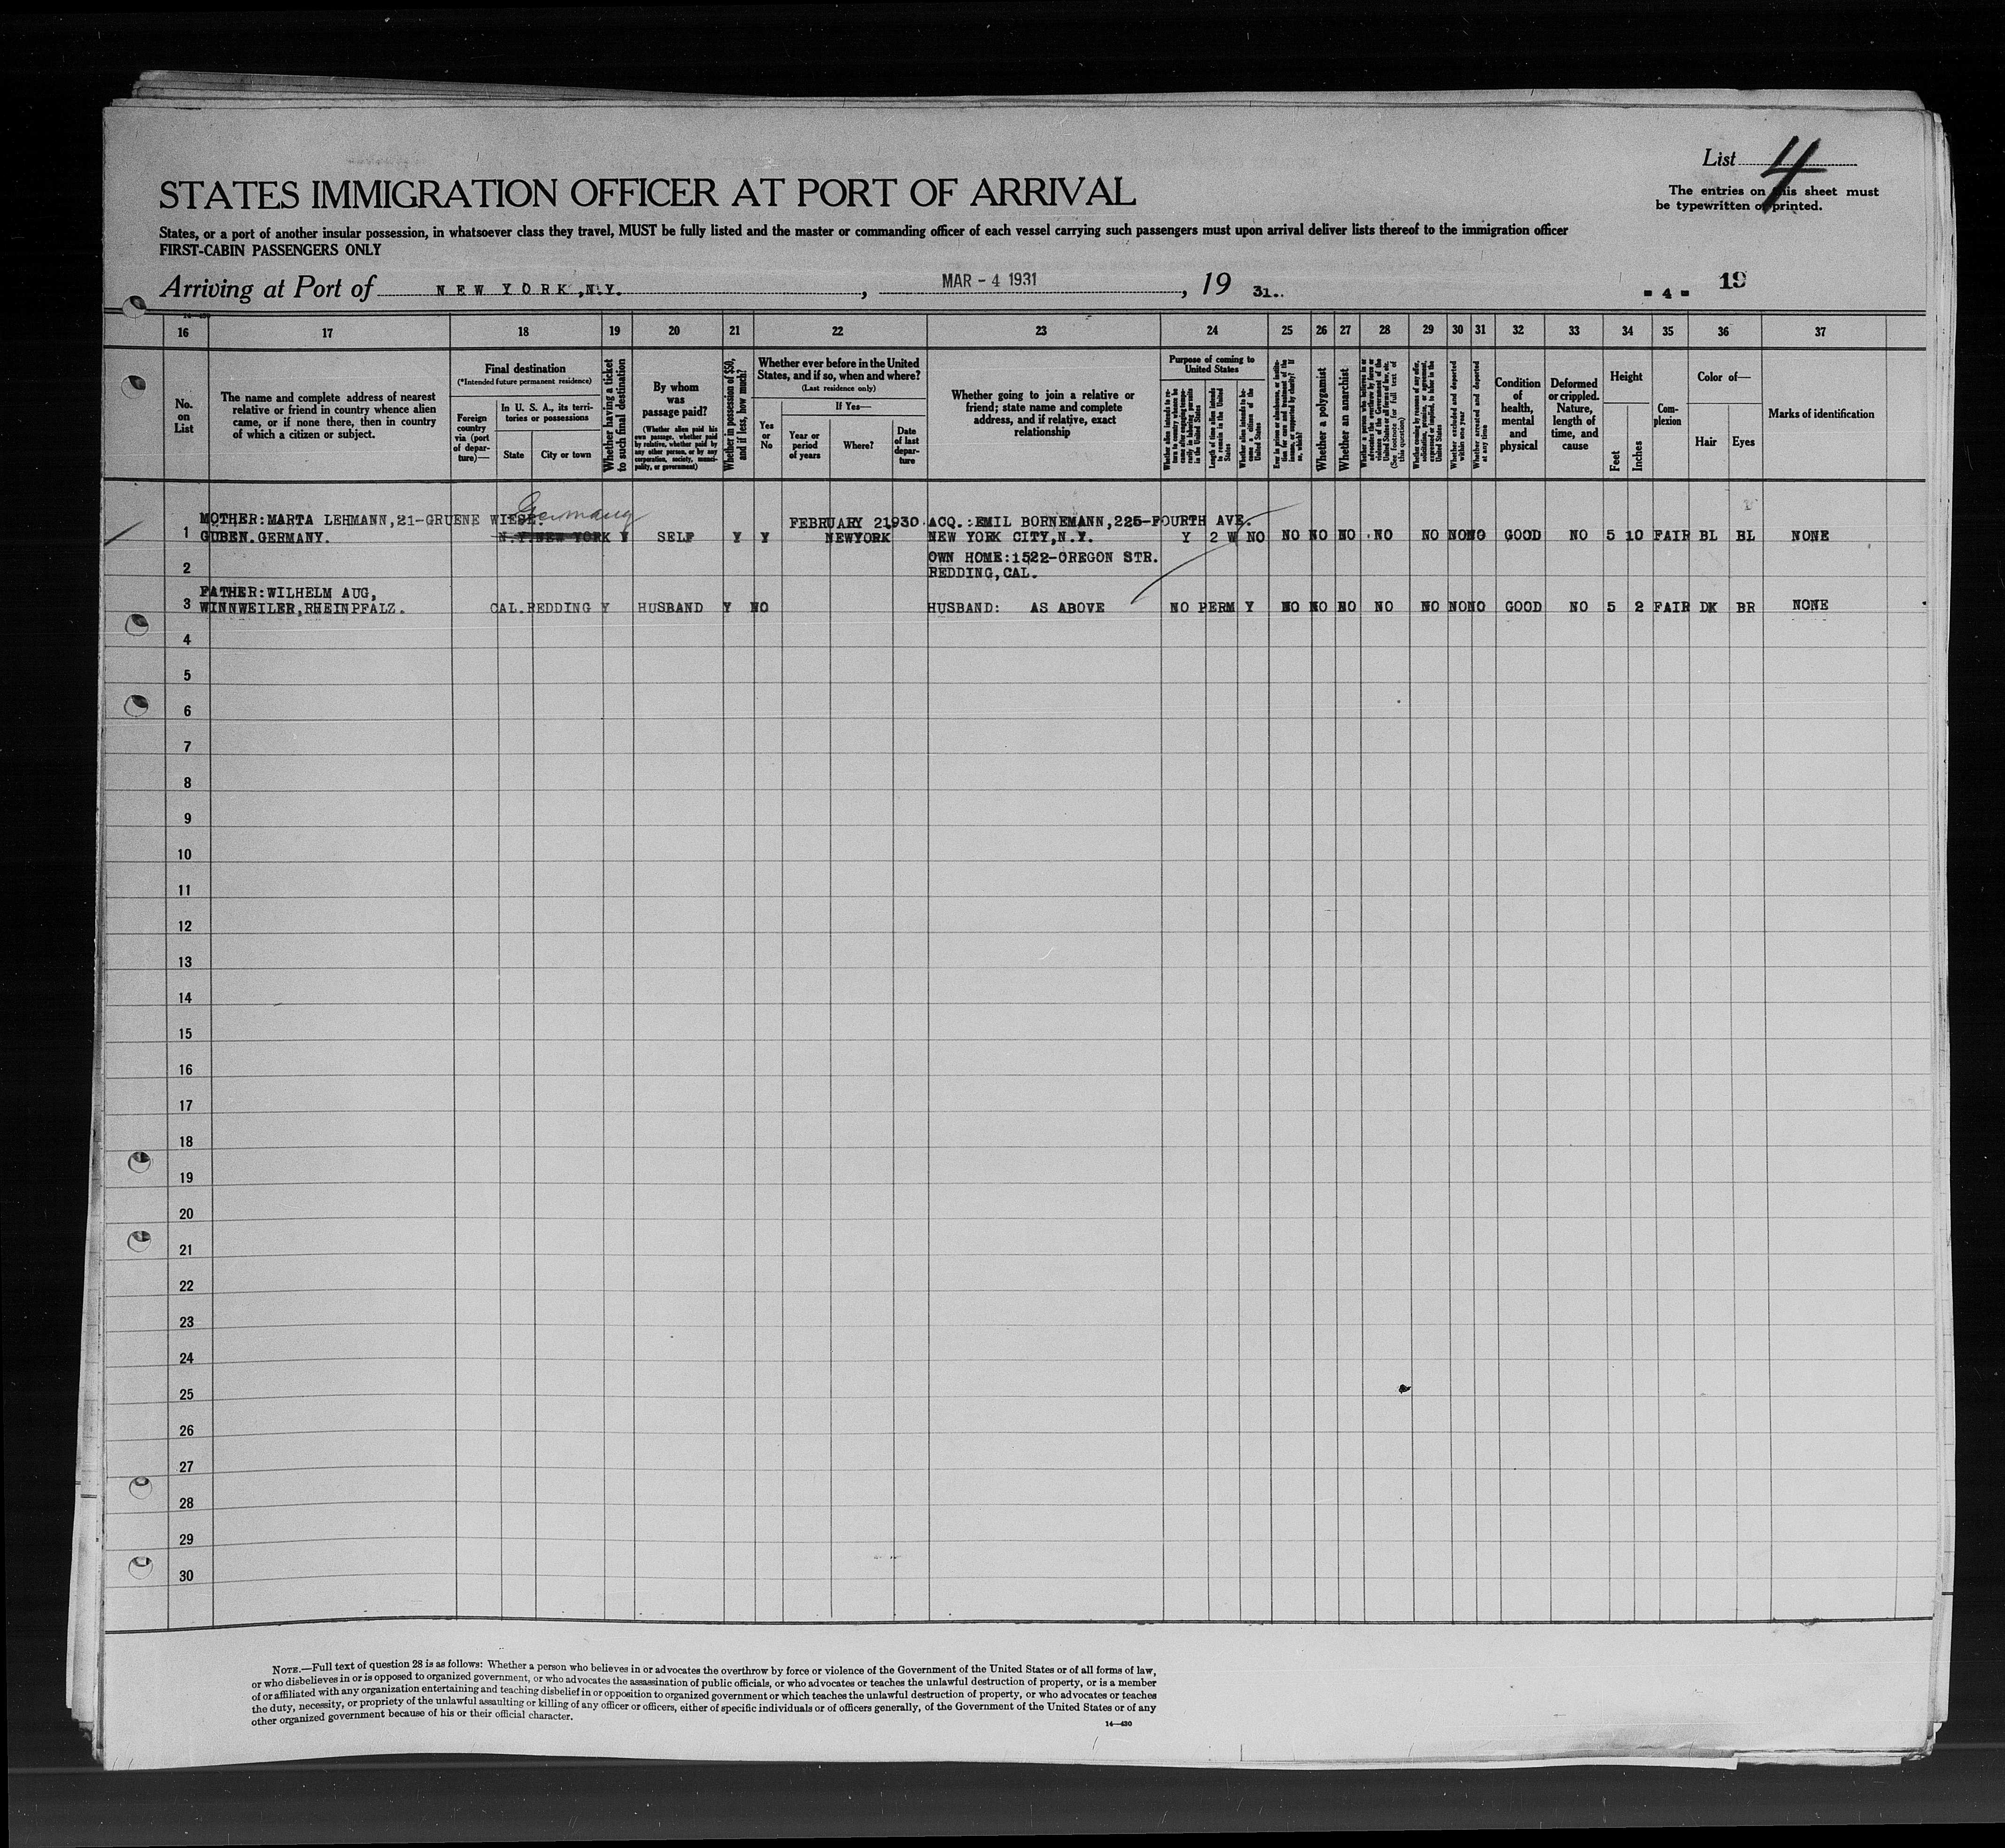 List 4
STATES IMMIGRATION OFFICER AT PORT OF ARRIVAL
The entries on this sheet must
be typewritten or printed.
States, or a port of another insular possession, in whatsoever class they travel, MUST be fully listed and the master or commanding officer of each vessel carrying such passengers must upon arrival deliver lists thereof to the immigration officer
FIRST-CABIN PASSENGERS ONLY
Arriving at Port of NEW YORK, N.Y., MAR - 4 1931, 19 31. - 4 - 19
16 17 18 19 20 21 22 23 24 25 26 27 28 29 30 31 32 33 34 35 36 37
No. on List
The name and complete address of nearest
relative or friend in country whence alien
came, or if none there, then in country
of which a citizen or subject.
Final destination
(*Intended future permanent residence)
Foreign country via (port of departure)—
In U. S. A., its territories or possessions
State
City or town
Whether having a ticket to such final destination
By whom was passage paid?
(Whether alien paid his own passage, whether paid by relative, whether paid by any other person, or by any corporation, society, municipality, or government)
Whether in possession of $50, and if less, how much?
Whether ever before in the United
States, and if so, when and where?
(Last residence only)
Yes or No
If Yes—
Year or period of years
Where?
Date of last departure
Whether going to join a relative or
friend; state name and complete
address, and if relative, exact
relationship
Purpose of coming to United States
Whether alien intends to return to country whence he came after engaging temporarily in laboring pursuits in the United States
Length of time alien intends to remain in the United States
Whether alien intends to become a citizen of the United States
Ever in prison or almshouse, or institution for care and treatment of the insane, or supported by charity? If so, which?
Whether a polygamist
Whether an anarchist
(See footnote for full text of this question)
Whether excluded and deported within one year
Whether arrested and deported at any time
Condition of health, mental and physical
Deformed or crippled. Nature, length of time, and cause
Height
Feet
Inches
Complexion
Color of—
Hair
Eyes
Marks of identification
Germany
MOTHER:MARTA LEHMANN,21-GRUENE WIESE. FEBRUARY 21930. ACQ.:EMIL BORNEMANN,225-FOURTH AVE.
1 GUBEN.GERMANY. N.Y.NEW YORK Y SELF Y Y NEWYORK NEW YORK CITY,N.Y. Y 2 W NO NO NO NO NO NO NO NO GOOD NO 5 10 FAIR BL BL NONE
OWN HOME:1522-OREGON STR.
2 REDDING,CAL.
FATHER:WILHELM AUG,
3 WINNWEILER,RHEINPFALZ. CAL.REDDING Y HUSBAND Y NO HUSBAND: AS ABOVE NO PERM Y NO NO NO NO NO NO NO GOOD NO 5 2 FAIR DK BR NONE
4
5
6
7
8
9
10
11
12
13
14
15
16
17
18
19
20
21
22
23
24
25
26
27
28
29
30
NOTE.—Full text of question 28 is as follows: Whether a person who believes in or advocates the overthrow by force or violence of the Government of the United States or of all forms of law,
or who disbelieves in or is opposed to organized government, or who advocates the assassination of public officials, or who advocates or teaches the unlawful destruction of property, or is a member
of or affiliated with any organization entertaining and teaching disbelief in or opposition to organized government or which teaches the unlawful destruction of property, or who advocates or teaches
the duty, necessity, or propriety of the unlawful assaulting or killing of any officer or officers, either of specific individuals or of officers generally, of the Government of the United States or of any
other organized government because of his or their official character.
14—430